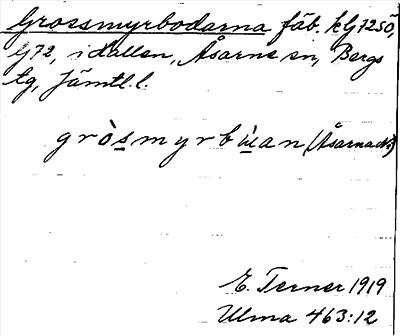 Grossmyrbodarna fäb. kG72SÖ,
G72, i dallen, Åsarne sn, Bergs
tg, Jämtl. l.
gròsmyrbùan (Åsarnedr)
E. Terner 1919
Ulma 463:12